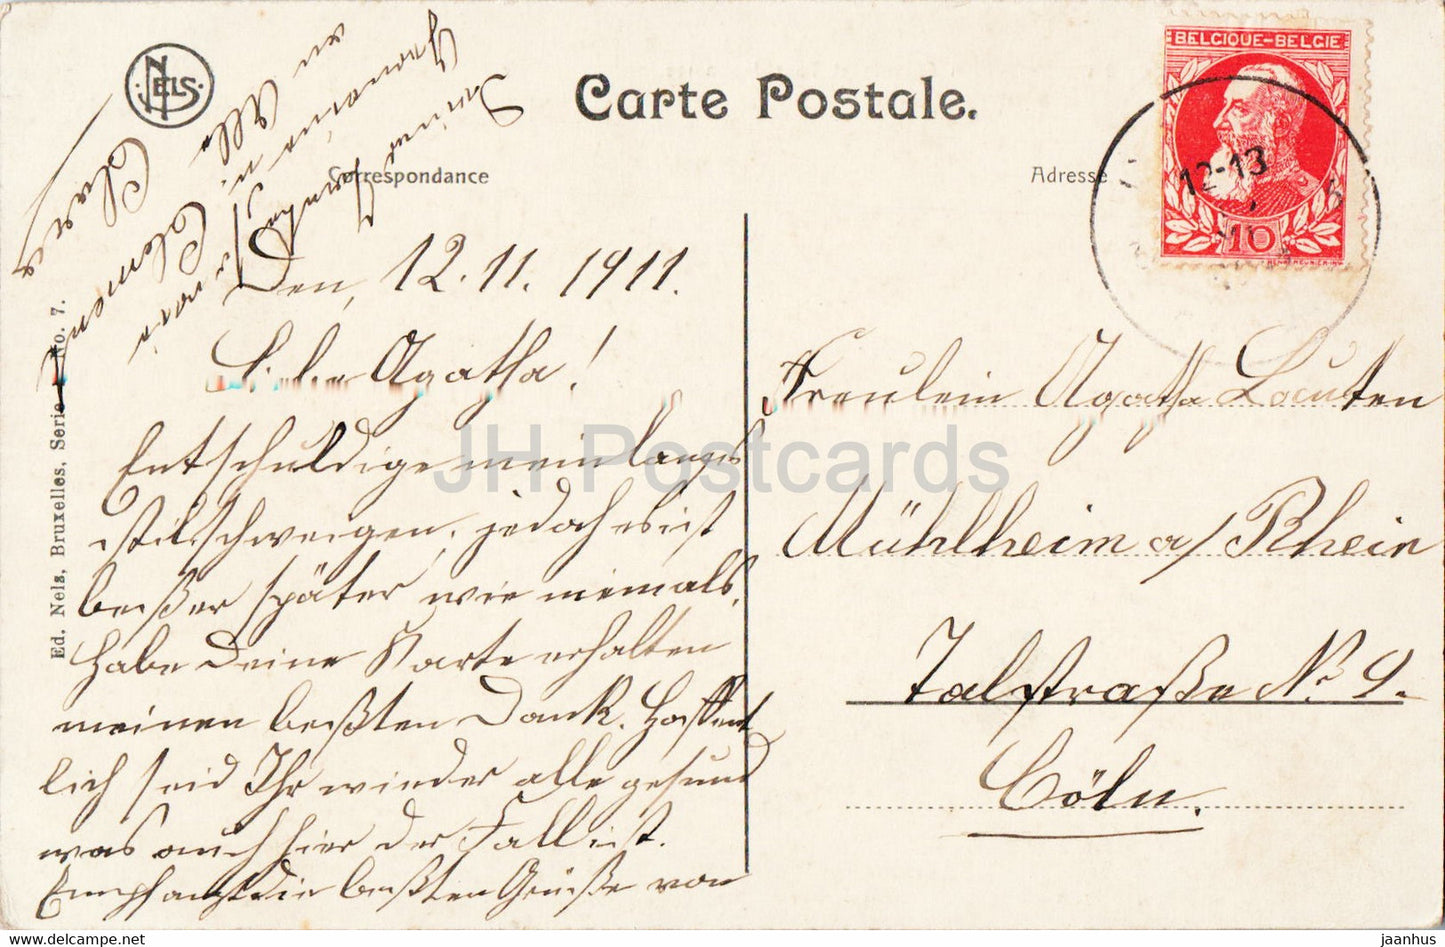 NELS.
Carte Postale.
BELGIQUE-BELGIE
12-13
10
Correspondance
Adresse
Den, 12.11.1911.
Liebe Agatha!
Entschuldige mein langes
stillschweigen, jedoch es ist
beßer später wie niemals.
Habe Deine Karte erhalten
meinen beßten Dank. Hoffent
lich seid Ihr wieder alle gesund
was auch hier der Fall ist.
Empfangt die beßten Grüße von
Deiner
u. Alle
Clemens
Claes
Fräulein Agatha Lauten
Mühlheim a/ Rhein
Talstraße No 9.
Cöln.
Ed. Nels, Bruxelles, Serie No. 7.
JH Postcards
jaanhus.delcampe.net
jaanhus